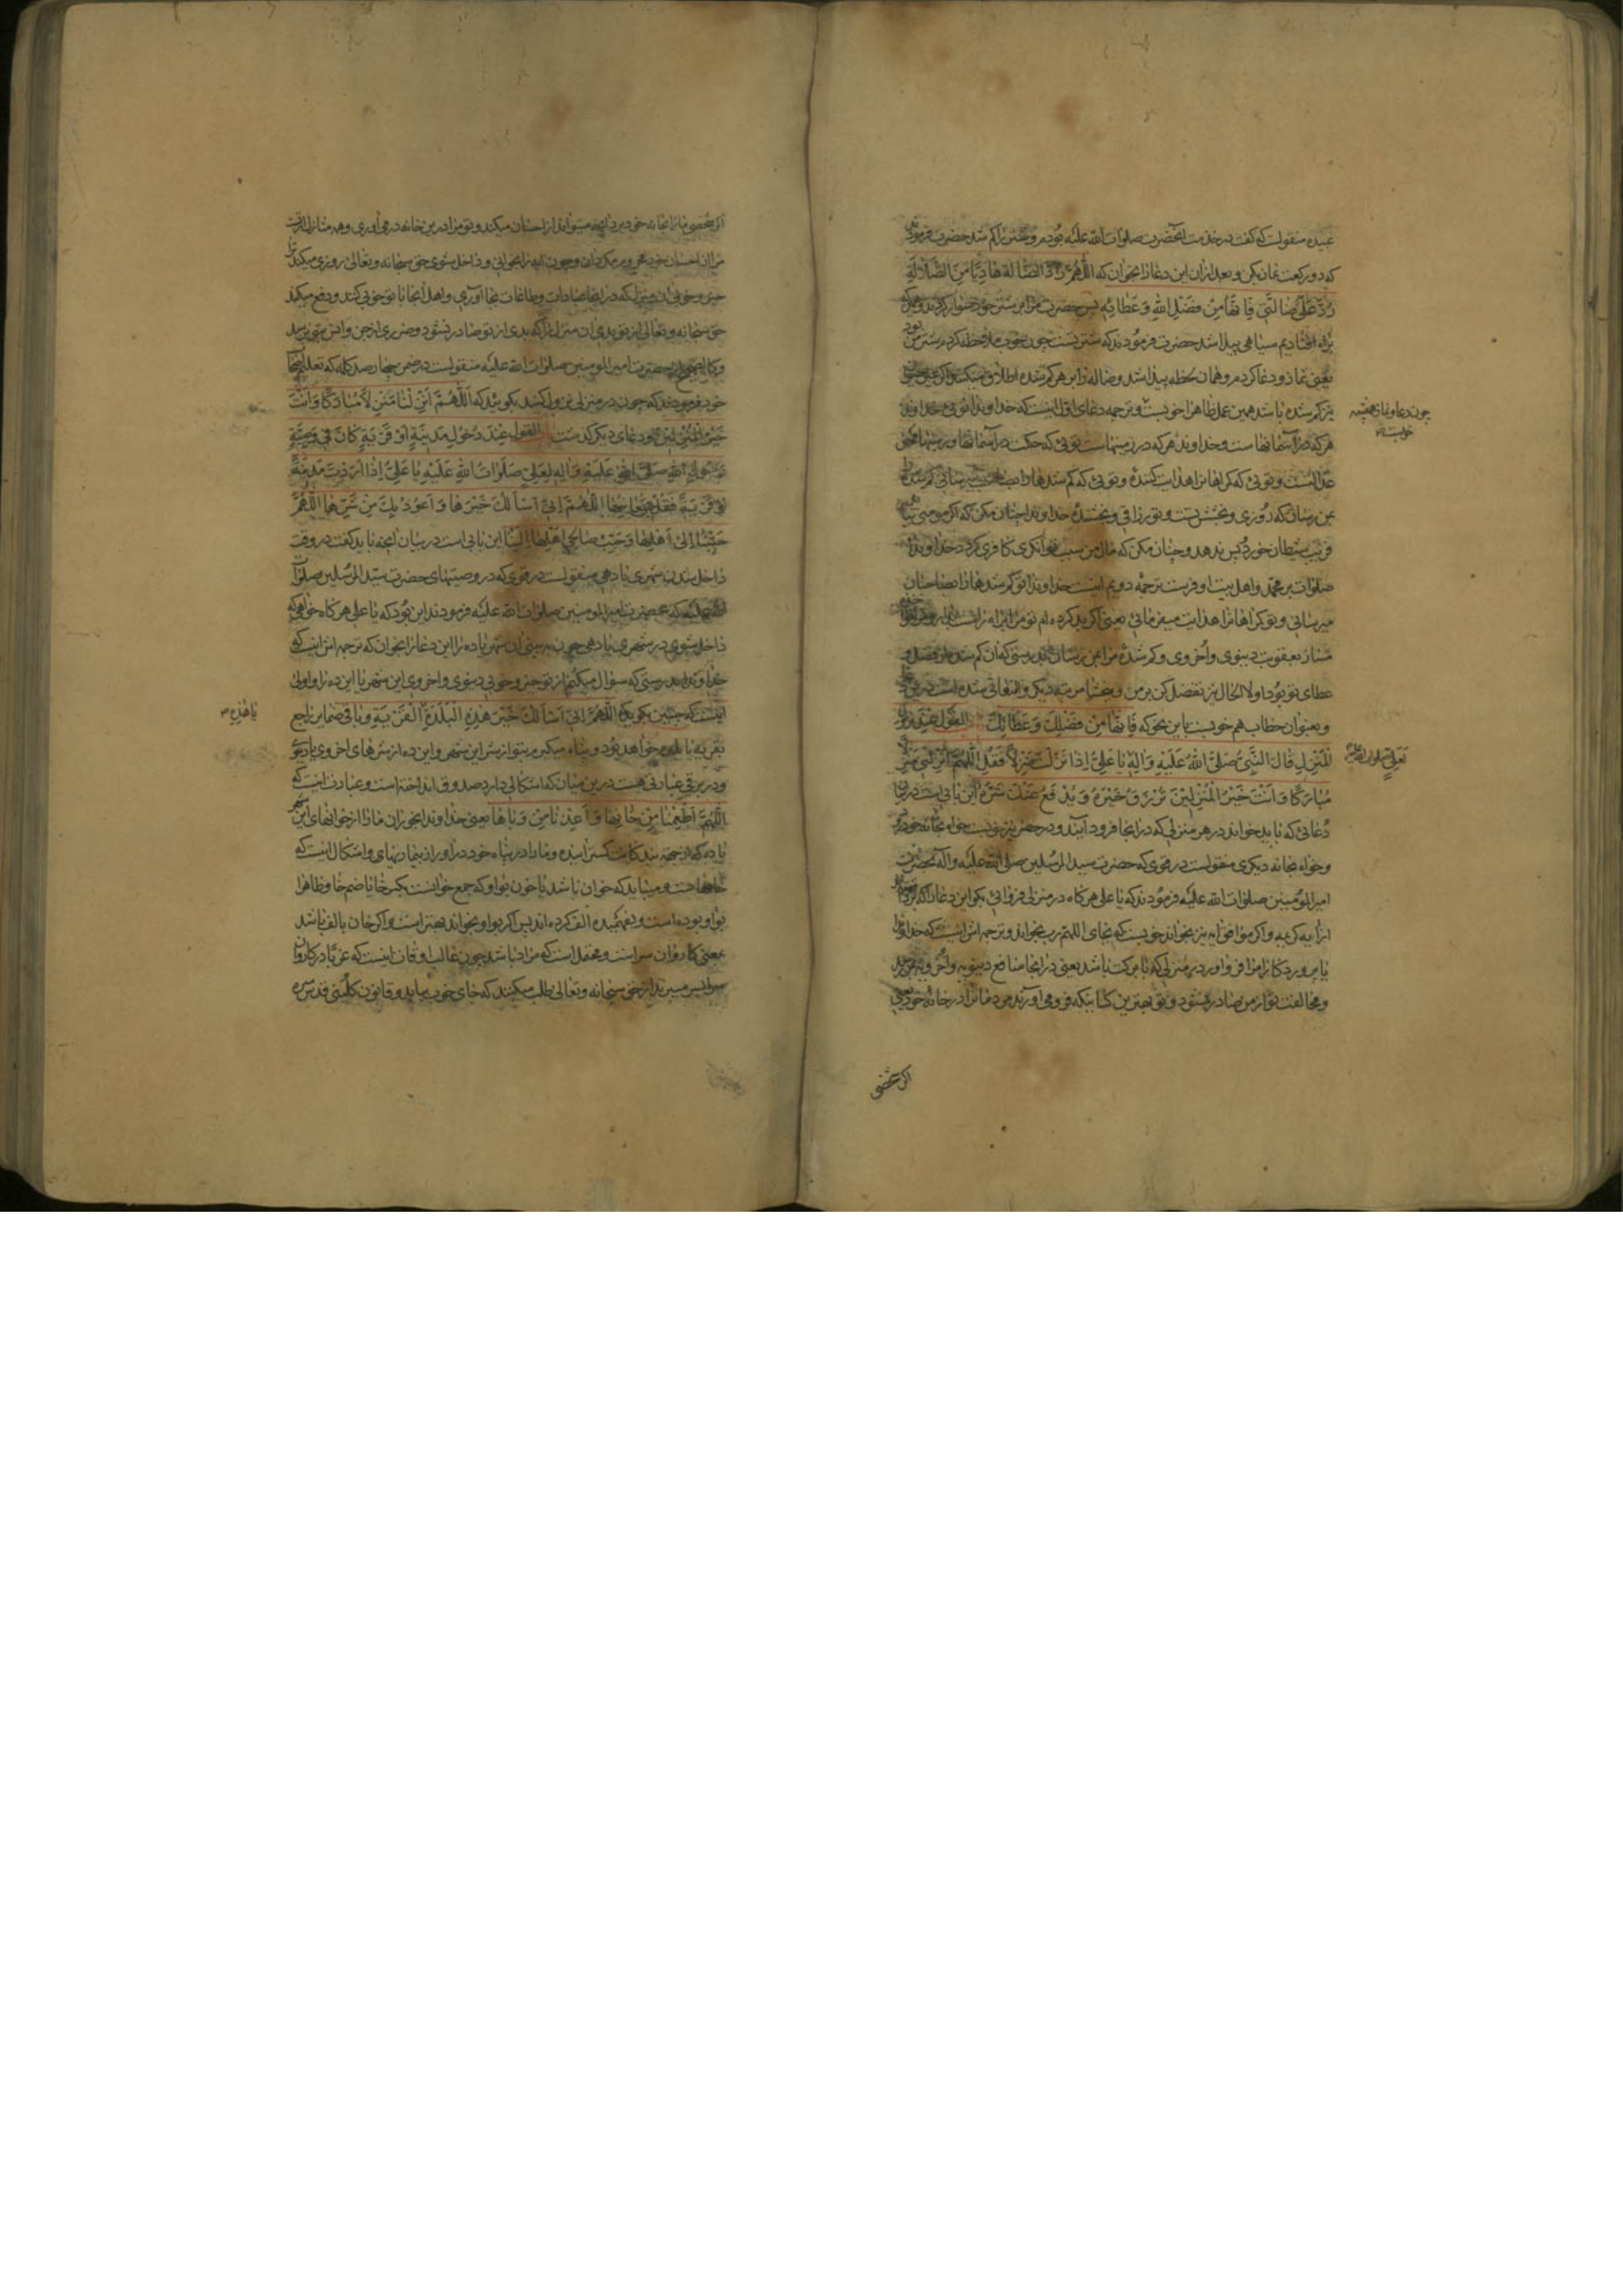 عبیده منقولست که گفت در خدمت آنحضرت صلوات الله علیه بودم و شترم کم شد حضرت فرمودند
که دو رکعت نماز بکن و بعد ازان این دعا را بخوان که اللهم راد الضالة هادیا من الضلالة
رد علی ضالتی فانها من فضل الله و عطائه پس حضرت مرا بر شتر خود سوار کردند و
براه افتادیم سیاهی پیدا شد حضرت فرمودند که شتر تست چون خوب ملاحظه کردم شتر من بود
یعنی نماز و دعا کردم و همان لحظه پیدا شد و ضاله را بر هر کم شده اطلاق میکنند
نیز کم شده باشد همین عمل ظاهرا خوبست و ترجمه دعای اول اینست که خداوندا توئی خداوند
چون دعا و نماز همیشه
خوبست
هر که در آسمانها ست و خداوند هر که در زمینهاست توئی که حکمت در آسمانها و زمینها
عدالتست و توئی که کمراهانرا هدایت کننده و توئی که کم شدها را بصاحبش میرسانی کم شده
بمن رسان که روزی و بخشش تست و تو رزاقی و بخشنده خداوندا چنان مکن که اکر مومنی
فریب شیطان خورد پس ندهد و چنان مکن که مال من سبب توانکری کافری کردد خداوندا
صلوات بر محمد و اهل بیت او فرست ترجمه دویم اینست خداوندا تو کم شدهارا بصاحبان
میرسانی و تو کمراهانرا هدایت میفرمائی یعنی اکر بد کرده ام تو مرا براه راست
مساز بعقوبت دنیوی و اخروی و کم شده مرا بمن رسان بدرستی که ان کم شده از فضل و
عطای تو بود اولا الحال نیز تفضل کن بر من و ببخشا مرتبه دیکر و التفاتی شده است در
و بعنوان خطاب هم خوبست باین نحو که فانها من فضلک و عطائک القول عند نزول
المنزل قال النبی صلی الله علیه و آله یا علی اذا نزلت منزلا فقل اللهم انزلنی منزلا
لعلی صلوات الله علیه
مبارکا و انت خیر المنزلین ترزق خیره و یدفع عنک شره این بابی است در بیان
دعائی که باید خواند در هر منزلی که در انجا فرود آیند و در حضر نیز خوبست خواه بخانه خود
و خواه بخانه دیکری منقولست در قوی که حضرت سید المرسلین صلی الله علیه و آله بحضرت
امیر المؤمنین صلوات الله علیه فرمودند که یا علی هر کاه در منزلی فرود ائی بکو این دعا را که
از ایه کریمه و اکر موافق ایه نیز بخواند خوبست که بجای اللهم رب بخواند و ترجمه اش اینست که خداوندا
یا پروردکارا مرا فرو اور در منزلی که با برکت باشد یعنی در انجا منافع دنیویه و اخرویه بمن رسد
و مخالفت تو از من صادر نشود و تو بهترین کسانیکه فرو می آورند مردمانرا در خانه خود یعنی
اکر شخصی
اکر شخصی مارا بخانه خود برد انچه میتواند از احسان میکند و تو مرا درین خانه در می اوری و همه منازل از تست
مرا از احسان خود محروم مکردان و چون ایه را بخوانی و داخل شوی حق سبحانه و تعالی روزی میکند ترا
خیر و خوبی ان منزل که در انجا عبادات و طاعات بجا اوری و اهل انجا با تو خوبی کنند و دفع میکند
حق سبحانه و تعالی از تو بدی ان منزل را که بدی از تو صادر نشود و ضرری از جن و انس بتو نرسد
و کالصحیح از حضرت امیر المومنین صلوات الله علیه منقولست در ضمن چهار صد کلمه که تعلیم اصحاب
خود فرمودند که چون در منزلی نزول کنید بکوئید که اللهم انزلنا منزلا مبارکا و انت
خیر المنزلین و دعای دیکر کذشت القول عند دخول مدینة او قریة کان فی وصیة
رسول الله صلی الله علیه و آله لعلی صلوات الله علیه یا علی اذا اردت مدینة
او قریة فقل حین تعاینها اللهم انی اسألک خیرها و اعوذ بک من شرها اللهم
حببنا الی اهلها و حبب صالحی اهلها الینا این بابی است در بیان انچه باید کفت در وقت
داخل شدن شهری یا دهی منقولست در قوی که در وصیتهای حضرت سید المرسلین صلوات
الله علیه که بحضرت امیر المومنین صلوات الله علیه فرمودند این بود که یا علی هر کاه خواهی که
داخل شوی در شهری یا دهی چون به بینی ان شهر یا ده را این دعا را بخوان که ترجمه اش اینست که
خداوندا بدرستی که سؤال میکنم از تو خیر و خوبی دنیوی و اخروی این شهر یا این ده را و اولی
اینست که چنین بکوید که اللهم انی اسألک خیر هذه البلدة القریة و باقی ضمایر راجع
یا هذه
بقریه یا بلده خواهد بود و پناه میکیرم بتو از شر این شهر و این ده از شرهای اخروی یا دنیوی
و در برقی عبارتی هست درین میان که اشکالی دارد صدوق انداخته است و عبارت اینست که
اللهم اطعمنا من خانها و اعذنا من وباها یعنی خداوندا بخوران مارا از خوانهای این شهر
یا ده که از جهة بندکانت کسترانیده و مارا در پناه خود دراور از بیماریهای و اشکال اینست که
خانها است و میباید که خوان باشد یا خون بواو که جمع خوانست بکسر خا یا ضم خا و ظاهرا
بواو بوده است و نفهمیده الف کرده اند پس اکر بواو بخواند بهتر است و اکر خان بالف باشد
بمعنی کاروان سراست و محتمل است که مراد باشد چون غالب اوقات اینست که غربا در کاروان
سرا بسر میبرند از حق سبحانه و تعالی طلب میکنند که جای خوب بیابد و قانون کلینی قدس سره